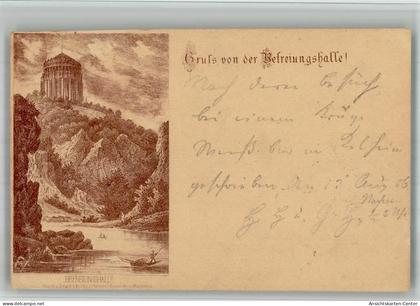 Gruſs von der Befreiungshalle!
Nach deren Besuch
bei einem Kruge
Weiß bier in Kelheim
geschrieben den 15 Aug
BEFREIUNGSHALLE
www.ansichtskarten-center.de
Ansichtskarten-Center